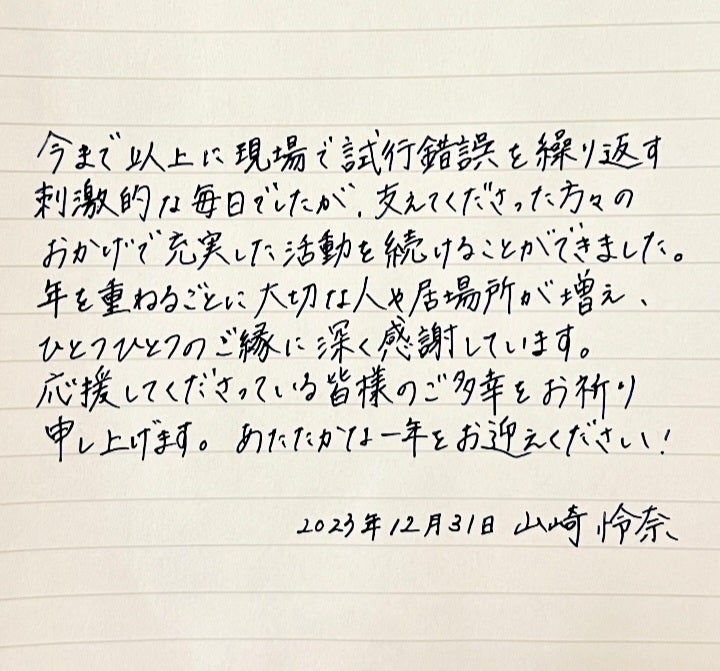 今まで以上に現場で試行錯誤を繰り返す
刺激的な毎日でしたが、支えてくださった方々の
おかげで充実した活動を続けることができました。
年を重ねるごとに大切な人や居場所が増え、
ひとつひとつのご縁に深く感謝しています。
応援してくださっている皆様のご多幸をお祈り
申し上げます。あたたかな一年をお迎えください!
2023年12月31日 山崎怜奈